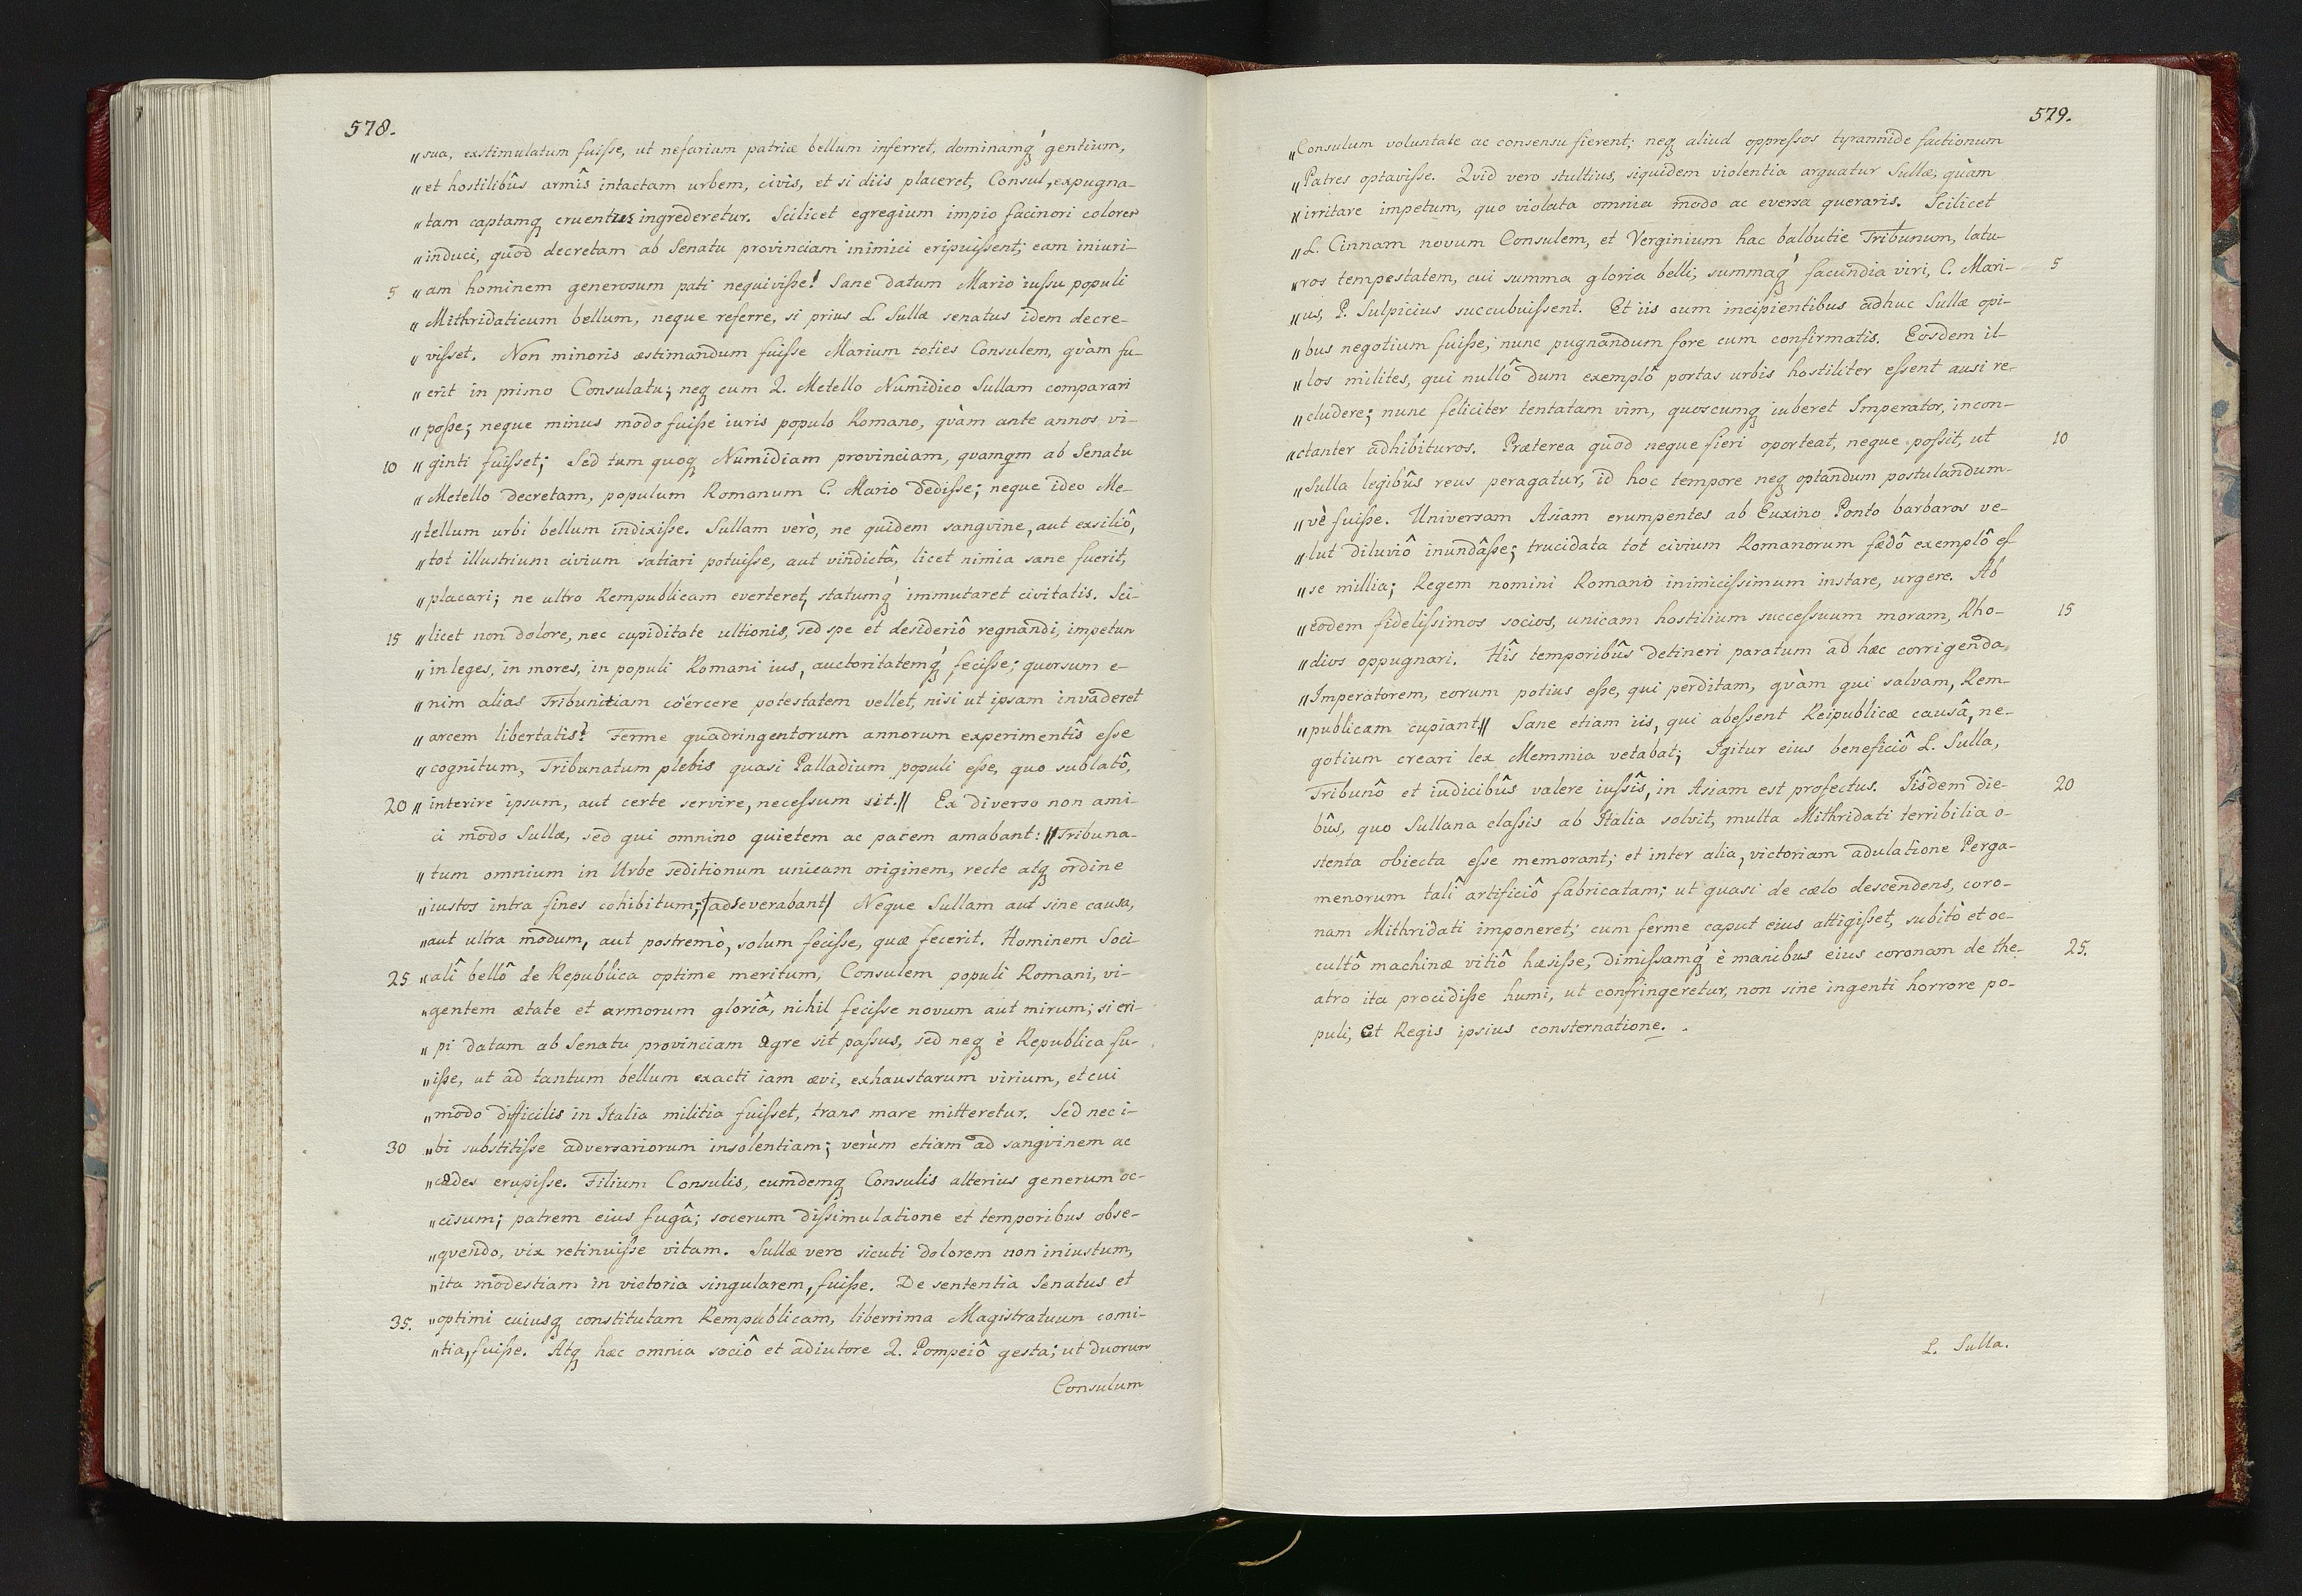 578.
„sua, exstimulatum fuisse, ut nefarium patriæ bellum inferret, dominamq́ gentium,
„et hostilibûs armîs intactam urbem, civis, et si diis placeret, Consul, expugna-
„tam captamq cruentus ingrederetur. Scilicet egregium impio facinori colorem
„induci, quod decretam ab Senatu provinciam inimici eripuissent; eam iniuri-
5 „am hominem generosum pati nequivisse! Sane datum Mario iussu populi
„Mithridaticum bellum, neque referre, si prius L. Sullæ senatus idem decre-
„visset. Non minoris æstimandum fuisse Marium toties Consulem, qvàm fu-
„erit in primo Consulatu; neq cum Q. Metello Numidico Sullam comparari
„posse; neque minus modo fuisse iuris populo Romano, qvàm ante annos vi-
10 „ginti fuisset; Sed tum quoq Numidiam provinciam, qvamqm ab Senatu
„Metello decretam, populum Romanum C. Mario dedisse; neque ideo Me-
„tellum urbi bellum indixisse. Sullam verò, ne quidem sangvine, aut exsiliô,
„tot illustrium civium satiari potuisse, aut vindictâ, licet nimia sane fuerit,
„placari; ne ultro Rempublicam everteret, statumq́ immutaret civitatis. Sci-
15 „licet non dolore, nec cupiditate ultionis, sed spe et desideriô regnandi, impetum
„in leges, in mores, in populi Romani ius, auctoritatemq́ fecisse; quorsum e-
„nim alias Tribunitiam coërcere potestatem vellet, nisi ut ipsam invaderet
„arcem libertatis? Ferme quadringentorum annorum experimentîs esse
„cognitum, Tribunatum plebis quasi Palladium populi esse, quo sublatô,
20 „interire ipsum, aut certe servire, necessum sit.„ Ex diverso non ami-
ci modo Sullæ, sed qui omnino quietem ac pacem amabant: „Tribuna-
„tum omnium in Urbe seditionum unicam originem, recte atq ordine
„iustos intra fines cohibitum; /adseverabant/ Neque Sullam aut sine causa,
„aut ultra modum, aut postremò, solum fecisse, quæ fecerit. Hominem Soci-
25 „alî bellô de Republica optime meritum, Consulem populi Romani, vi-
„gentem ætate et armorum gloriâ, nihil fecisse novum aut mirum; si eri-
„pi datam ab Senatu provinciam ægre sit passus, sed neq è Republica fu-
„isse, ut ad tantum bellum exacti iam ævi, exhaustarum virium, et cui
„modo difficilis in Italia militia fuisset, trans mare mitteretur. Sed nec i-
30 „bi substitisse adversariorum insolentiam; verùm etiam ad sangvinem ac
„cædes erupisse. Filium Consulis, eumdemq Consulis alterius generum oc-
„cisum; patrem eius fugâ; socerum dissimulatione et temporibus obse-
„qvendo, vix retinuisse vitam. Sullæ vero sicuti dolorem non iniustum,
„ita modestiam in victoria singularem, fuisse. De sententia Senatus et
35. „optimi cuiusq constitutam Rempublicam, liberrima Magistratuum comi-
„tia, fuisse. Atq hæc omnia sociô et adiutore Q. Pompeiô gesta; ut duorum
Consulum
579.
„Consulum voluntate ac consensu fierent; neq aliud oppressos tyrannide factionum
„Patres optavisse. Qvid vero stultius, siquidem violentia arguatur Sullæ, qùam
„irritare impetum, quo violata omnia modo ac eversa queraris. Scilicet
„L. Cinnam novum Consulem, et Verginium hac balbutie Tribunum, latu-
„ros tempestatem, cui summa gloria belli, summaq́ facundia viri, C. Mari- 5
„us, P. Sulpicius succubuissent. Et iis cum incipientibus adhuc Sullæ opi-
„bus negotium fuisse; nunc pugnandum fore cum confirmatis. Eosdem il-
„los milites, qui nullô dum exemplô portas urbis hostiliter essent ausi re-
„cludere; nunc feliciter tentatam vim, quoscumq iuberet Imperator, incon-
„ctanter adhibituros. Præterea quod neque fieri oporteat, neque possit, ut 10
„Sulla legibûs reus peragatur, id hoc tempore neq optandum postulandum-
„vè fuisse. Universam Asiam erumpentes ab Euxino Ponto barbaros ve-
„lut diluviô inundâsse; trucidata tot civium Romanorum fœdô exemplô es-
„se millia; Regem nomini Romano inimicissimum instare, urgere. Ab
„eodem fidelissimos socios, unicam hostilium successuum moram, Rho- 15
„dios oppugnari. Hîs temporibûs detineri paratum ad hæc corrigenda,
„Imperatorem, eorum potius esse, qui perditam, qvàm qui salvam, Rem-
„publicam cupiant„ Sane etiam iis, qui abessent Reipublicæ causâ, ne-
gotium creari lex Memmia vetabat; Igitur eius beneficiô L. Sulla,
Tribunô et iudicibûs valere iussîs, in Asiam est profectus. Iîsdem die- 20
bûs, quo Sullana classis ab Italia solvit, multa Mithridati terribilia o-
stenta obiecta esse memorant; et inter alia, victoriam adulatione Perga-
menorum talî artificiô fabricatam; ut quasi de cælo descendens, coro-
nam Mithridati imponeret; cum ferme caput eius attigisset, subitò et oc-
cultô machinæ vitiô hæsisse, dimissamq́ è manibus eius coronam de the- 25.
atro ita procidisse humi, ut confringeretur, non sine ingenti horrore po-
puli, et Regis ipsius consternatione.
L. Sulla.